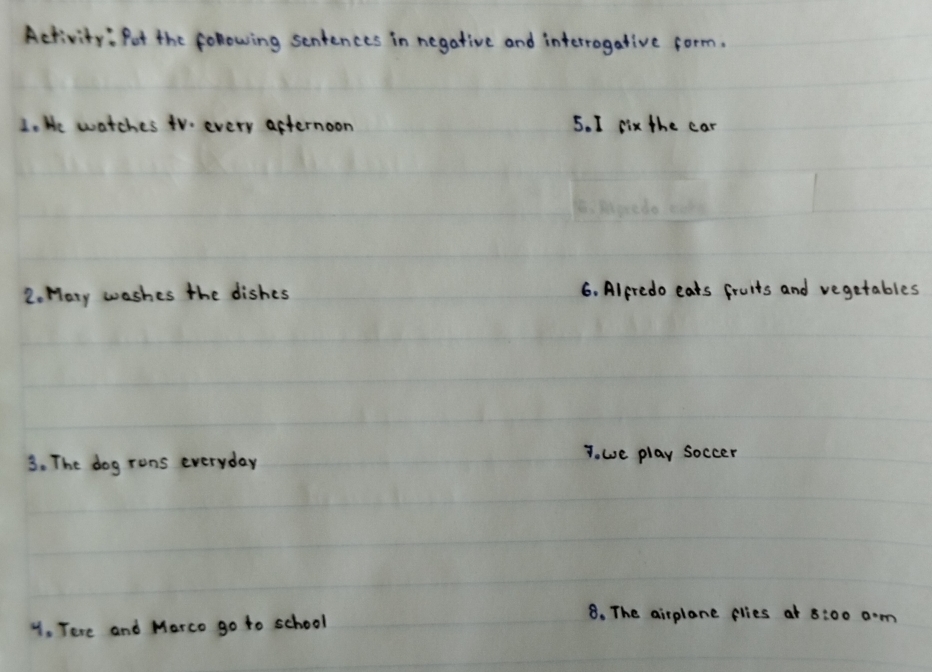 Activity: Put the following sentences in negative and interrogative form.
1. He watches tv. every afternoon
5. I fix the car
2. Mary washes the dishes
6. Alfredo eats fruits and vegetables
3. The dog runs everyday
7. we play Soccer
4. Tere and Marco go to school
8. The airplane flies at 8:00 a.m